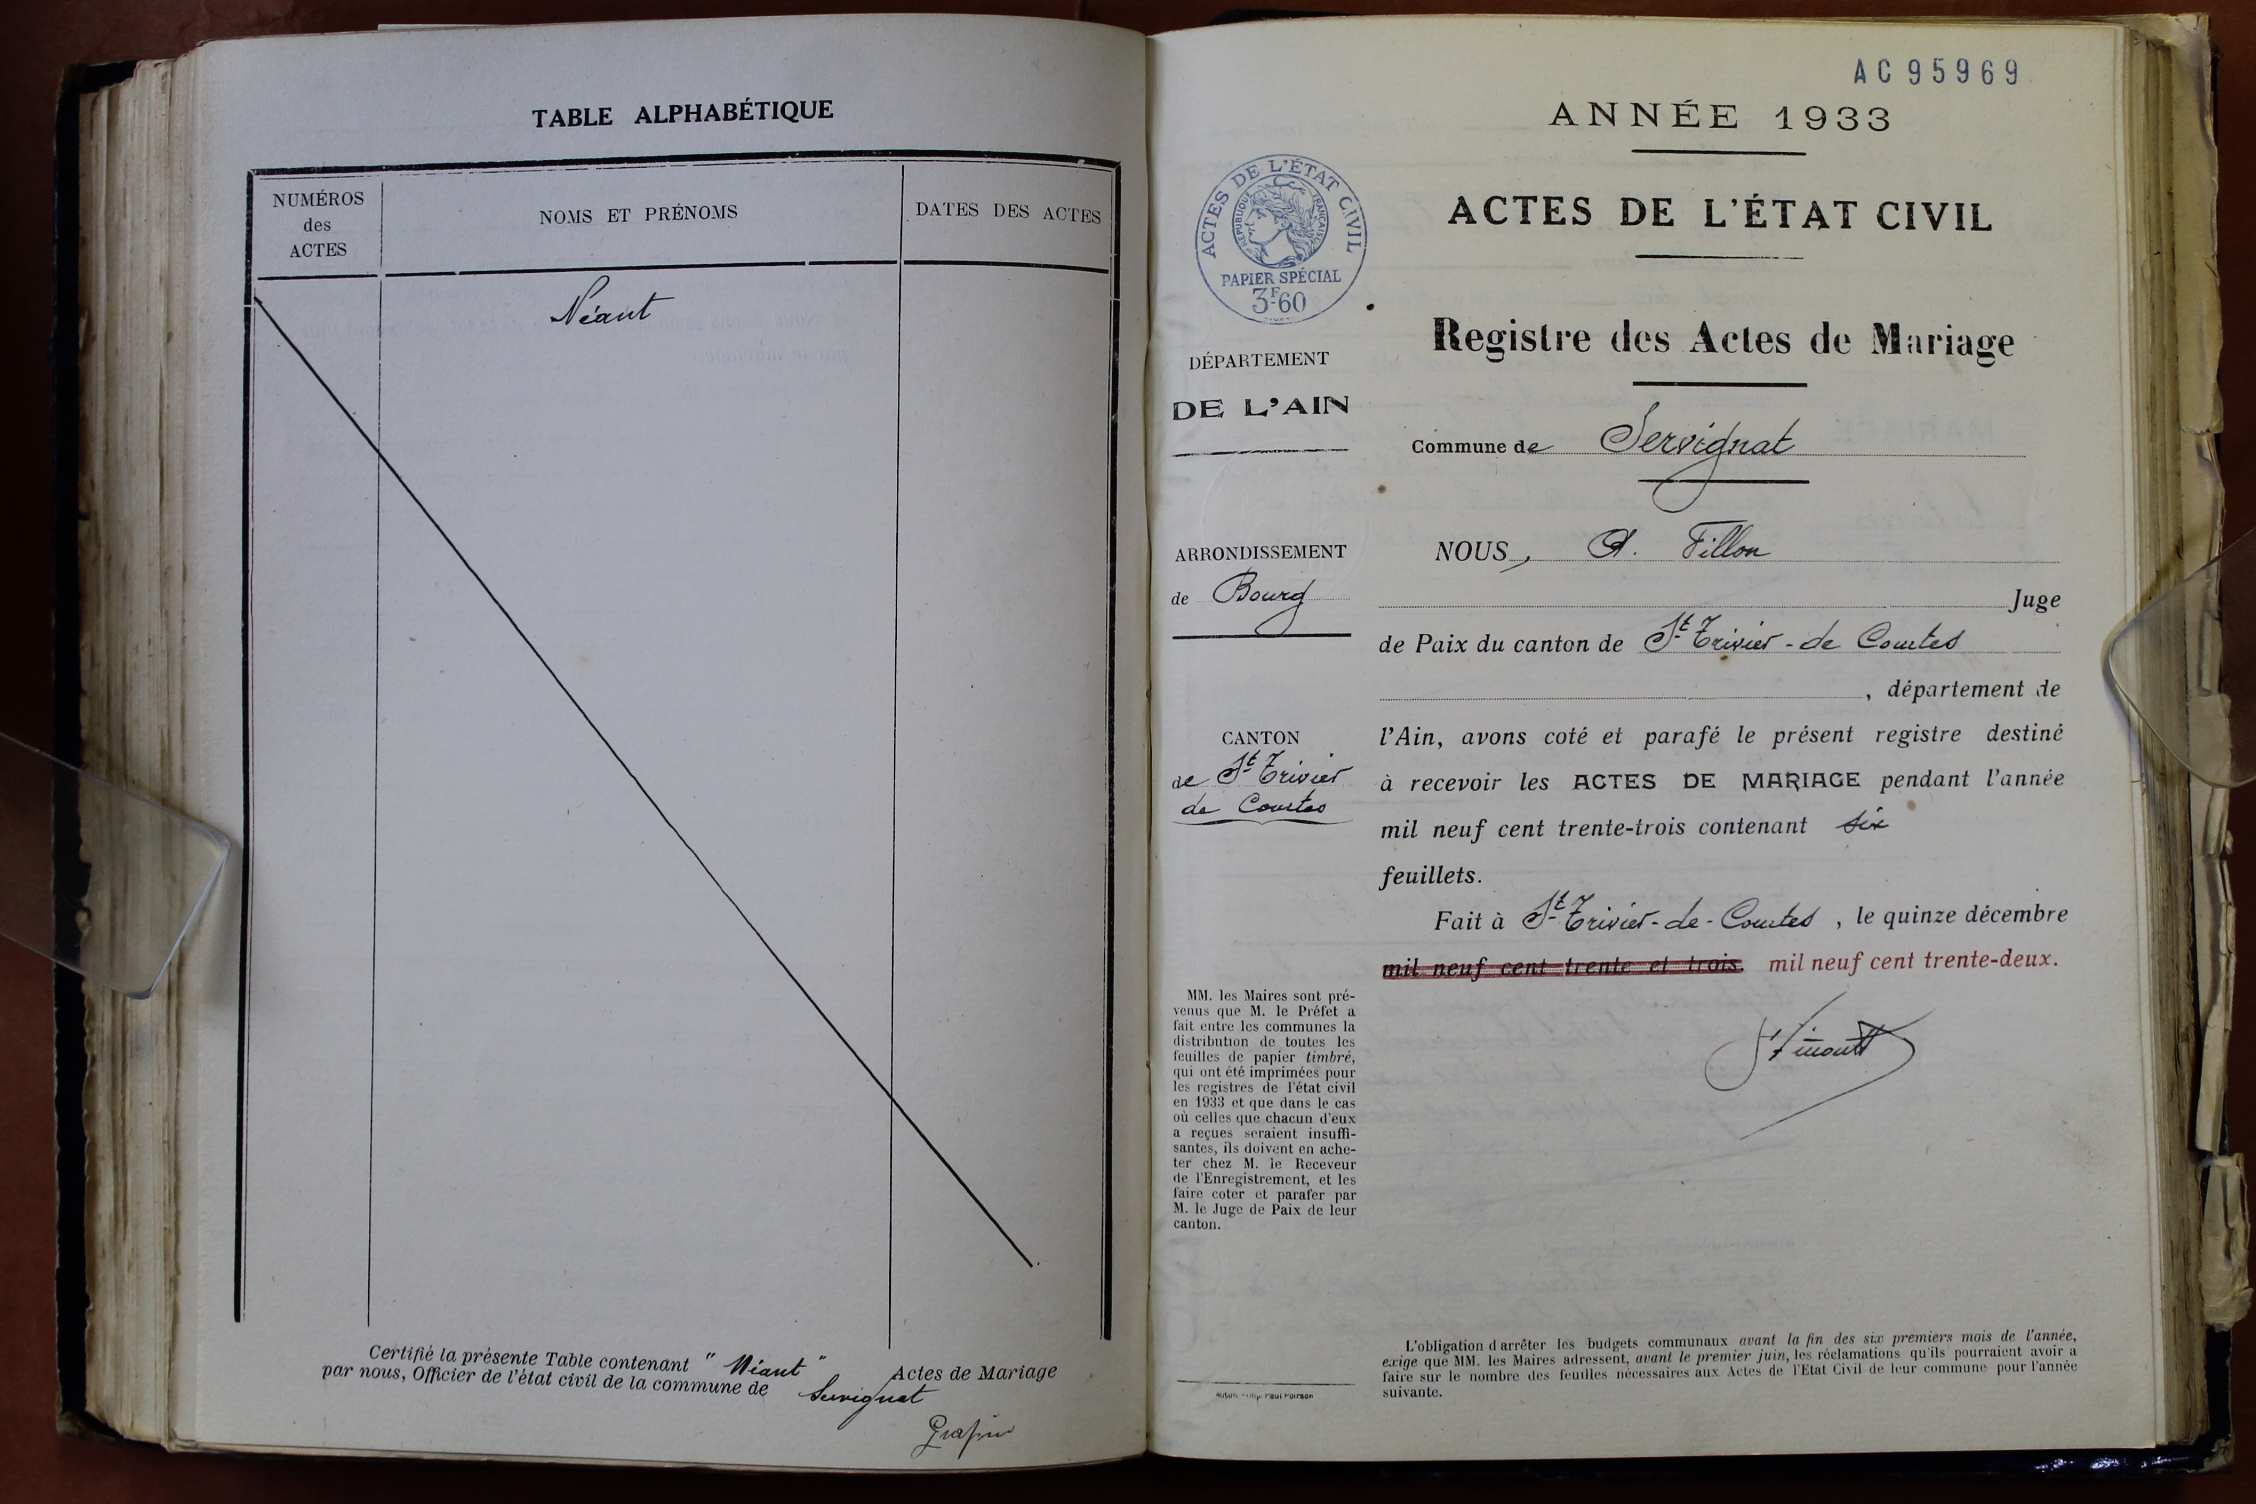 TABLE ALPHABÉTIQUE
NUMÉROS
des
ACTES
NOMS ET PRÉNOMS
DATES DES ACTES
Néant
Certifié la présente Table contenant " Néant " Actes de Mariage
par nous, Officier de l'état civil de la commune de Servignat
AC95969
ANNÉE 1933
ACTES DE L'ÉTAT CIVIL
Registre des Actes de Mariage
Commune de Servignat
ACTES DE L'ÉTAT CIVIL
REPUBLIQUE FRANÇAISE
PAPIER SPÉCIAL
3F60
DÉPARTEMENT
DE L'AIN
ARRONDISSEMENT
de Bourg
CANTON
de St Trivier
de Courtes
MM. les Maires sont pré-
venus que M. le Préfet a
fait entre les communes la
distribution de toutes les
feuilles de papier timbré,
qui ont été imprimées pour
les registres de l'état civil
en 1933 et que dans le cas
où celles que chacun d'eux
a reçues seraient insuffi-
santes, ils doivent en ache-
ter chez M. le Receveur
de l'Enregistrement, et les
faire coter et parafer par
M. le Juge de Paix de leur
canton.
NOUS, A. Fillon
Juge
de Paix du canton de St Trivier-de Courtes
, département de
l'Ain, avons coté et parafé le présent registre destiné
à recevoir les ACTES DE MARIAGE pendant l'année
mil neuf cent trente-trois contenant six
feuillets.
Fait à St Trivier-de-Courtes, le quinze décembre
mil neuf cent trente et trois. mil neuf cent trente-deux.
L'obligation d'arrêter les budgets communaux avant la fin des six premiers mois de l'année,
exige que MM. les Maires adressent, avant le premier juin, les réclamations qu'ils pourraient avoir à
faire sur le nombre des feuilles nécessaires aux Actes de l'Etat Civil de leur commune pour l'année
suivante.